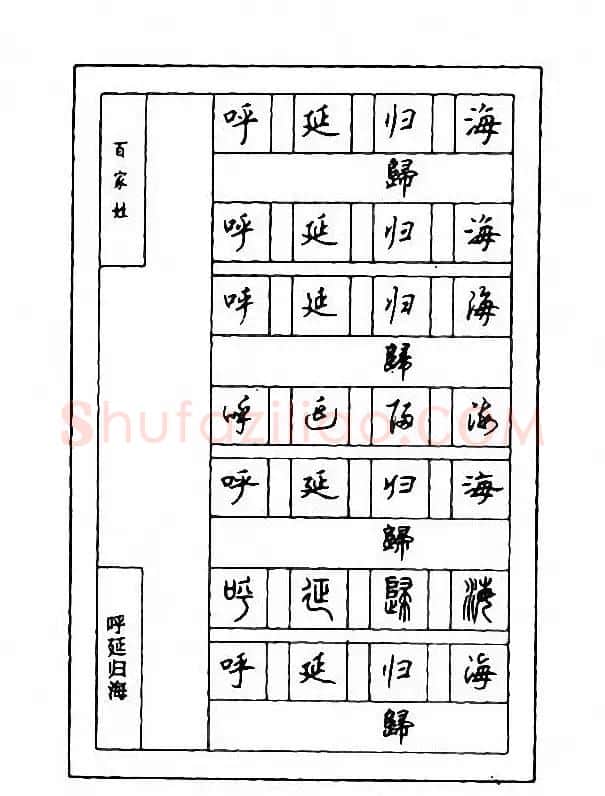 百家姓
呼 延 归 海
歸
呼 延 归 海
呼 延 归 海
歸
呼 延 歸 海
Shufaziliao.COM
呼 延 归 海
歸
呼 延 歸 海
呼 延 归 海
歸
呼延归海